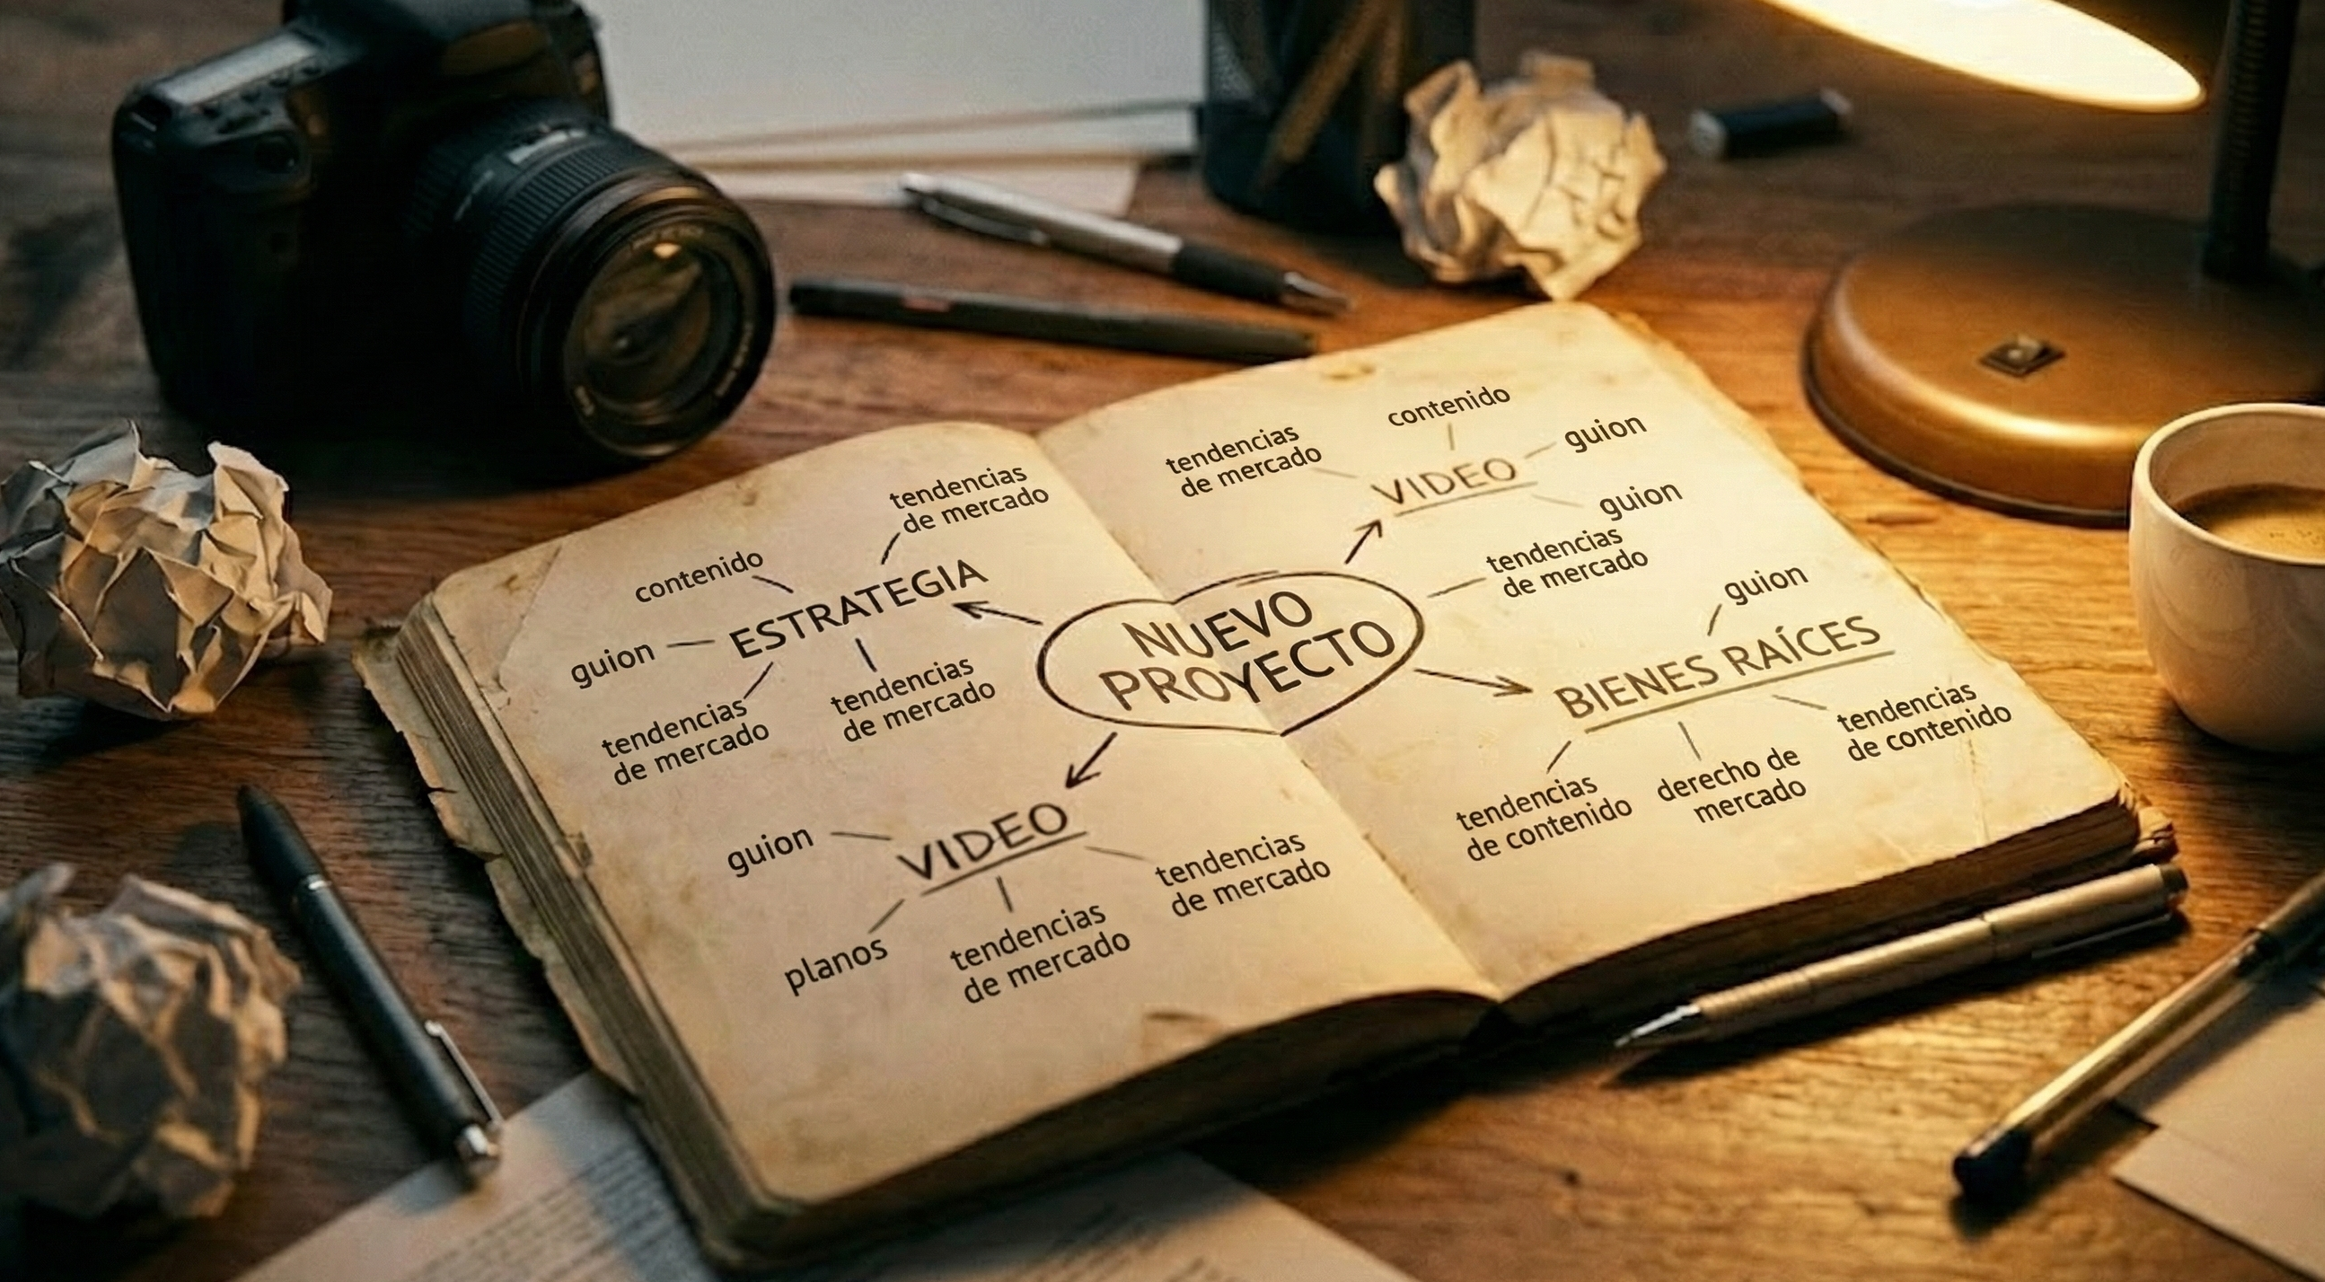 tendencias
de mercado
contenido
ESTRATEGIA
guion
tendencias
de mercado
tendencias
de mercado
guion
VIDEO
planos
tendencias
de mercado
tendencias
de mercado
NUEVO
PROYECTO
contenido
tendencias
de mercado
guion
VIDEO
guion
tendencias
de mercado
guion
BIENES RAÍCES
tendencias
de contenido
derecho de
mercado
tendencias
de contenido